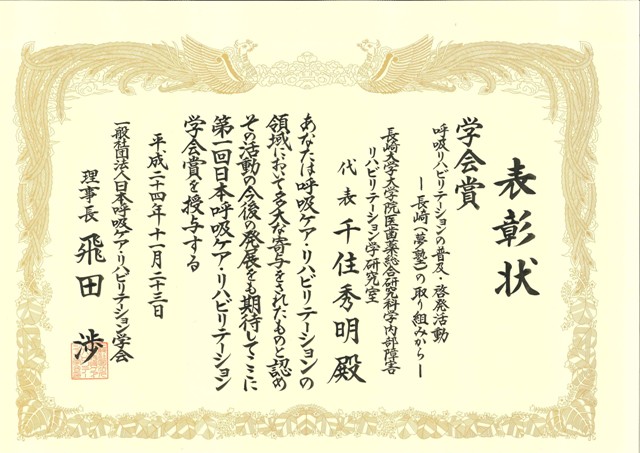 表彰状
学会賞
呼吸リハビリテーションの普及・啓発活動
ー長崎(夢塾)の取り組みからー
長崎大学大学院医歯薬総合研究科学内部障害
リハビリテーション学研究室
代表 千住秀明殿
あなたは呼吸ケア・リハビリテーションの
領域において多大な寄与をされたものと認め
その活動の今後の発展をも期待してここに
第一回日本呼吸ケア・リハビリテーション
学会賞を授与する
平成二十四年十一月二十三日
一般社団法人日本呼吸ケア・リハビリテーション学会
理事長 飛田渉